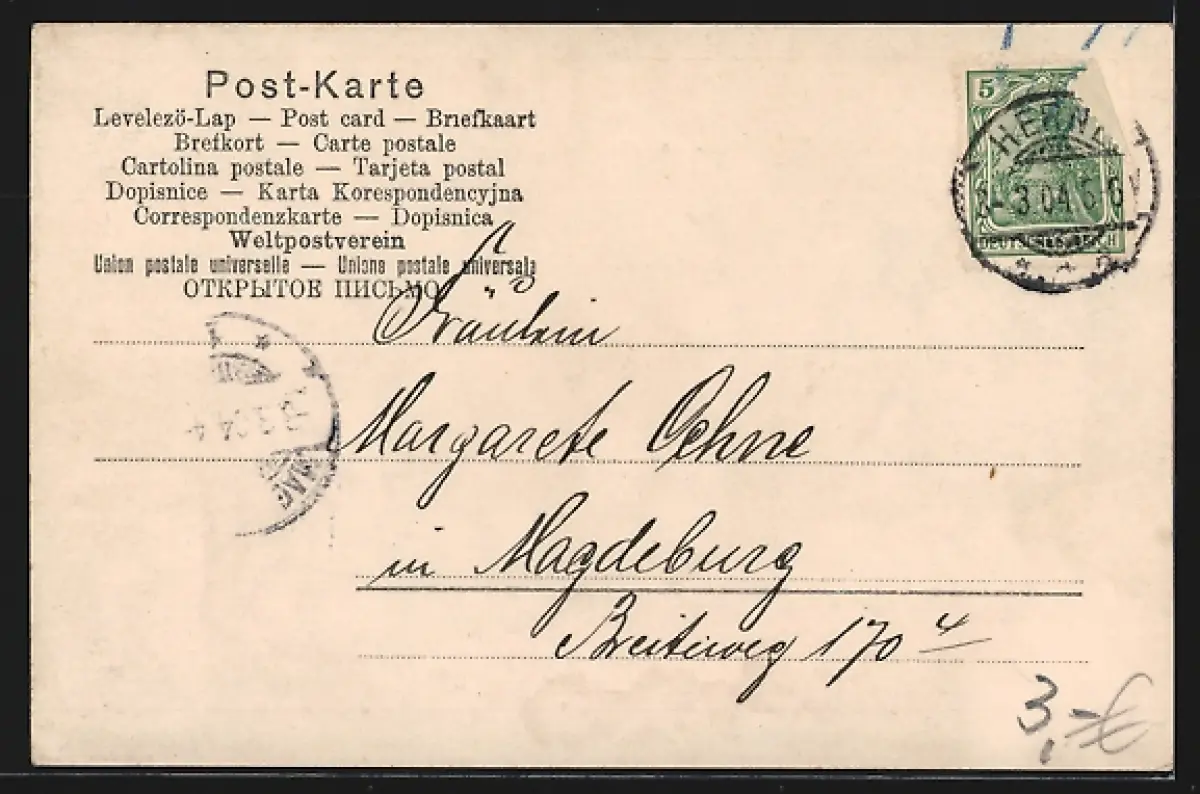 Post-Karte
Levelezö-Lap — Post card — Briefkaart
Brefkort — Carte postale
Cartolina postale — Tarjeta postal
Dopisnice — Karta Korespondencyjna
Correspondenzkarte — Dopisnica
Weltpostverein
Union postale universelle — Unione postale universale
ОТКРЫТОЕ ПИСЬМО
5
3.04.5-6V
DEUTSCHES REICH
Fräulein
Margarete Oehne
in Magdeburg
Breiteweg 170 4
MAG
3,-€